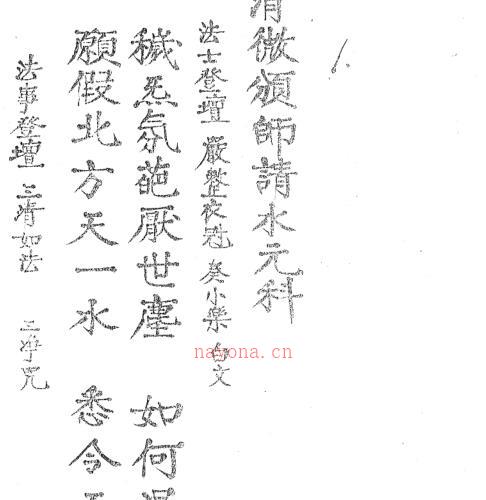 清微頒師請水元科
法士登壇 嚴整衣冠 奏小樂 白文
穢炁氛葩厭世塵 如何
願假北方天一水 悉令
法事登壇 三清如法 三淨咒
nayona.cn